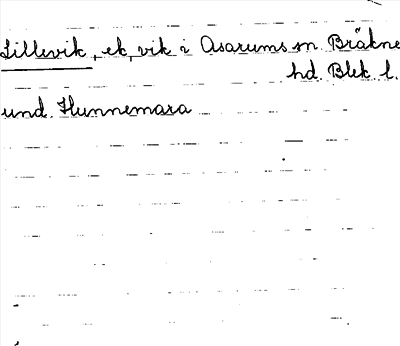 Lillevik, ek, vik i Asarums sn. Bräkne
hd. Blek. l.
und. Hunnemara